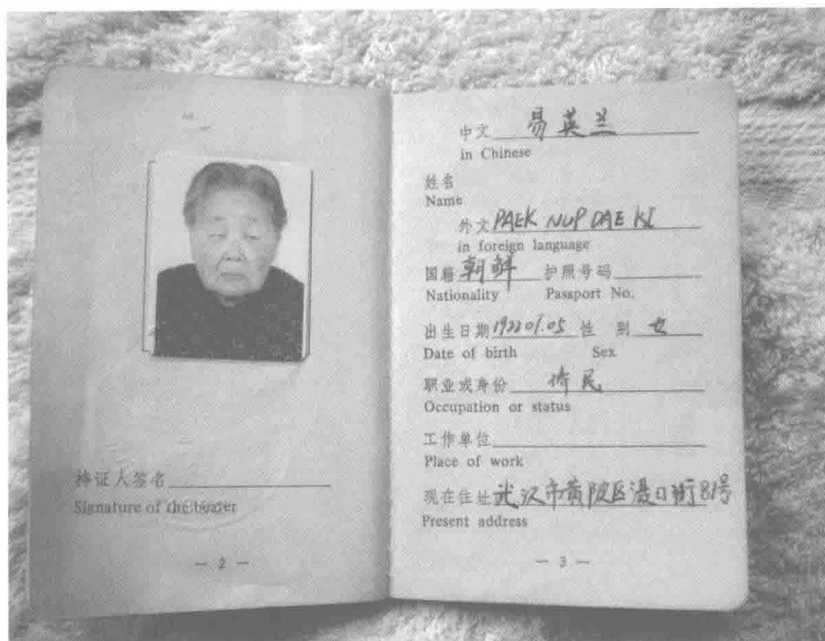 持证人签名
Signature of the bearer
— 2 —
中文 易英兰
in Chinese
姓名
Name
外文 PAEK NUP DAE KI
in foreign language
国籍 朝鲜 护照号码
Nationality Passport No.
出生日期 1922 01.05 性 别 女
Date of birth Sex
职业或身份 侨民
Occupation or status
工作单位
Place of work
现在住址 武汉市黄陂区滠口街81号
Present address
— 3 —